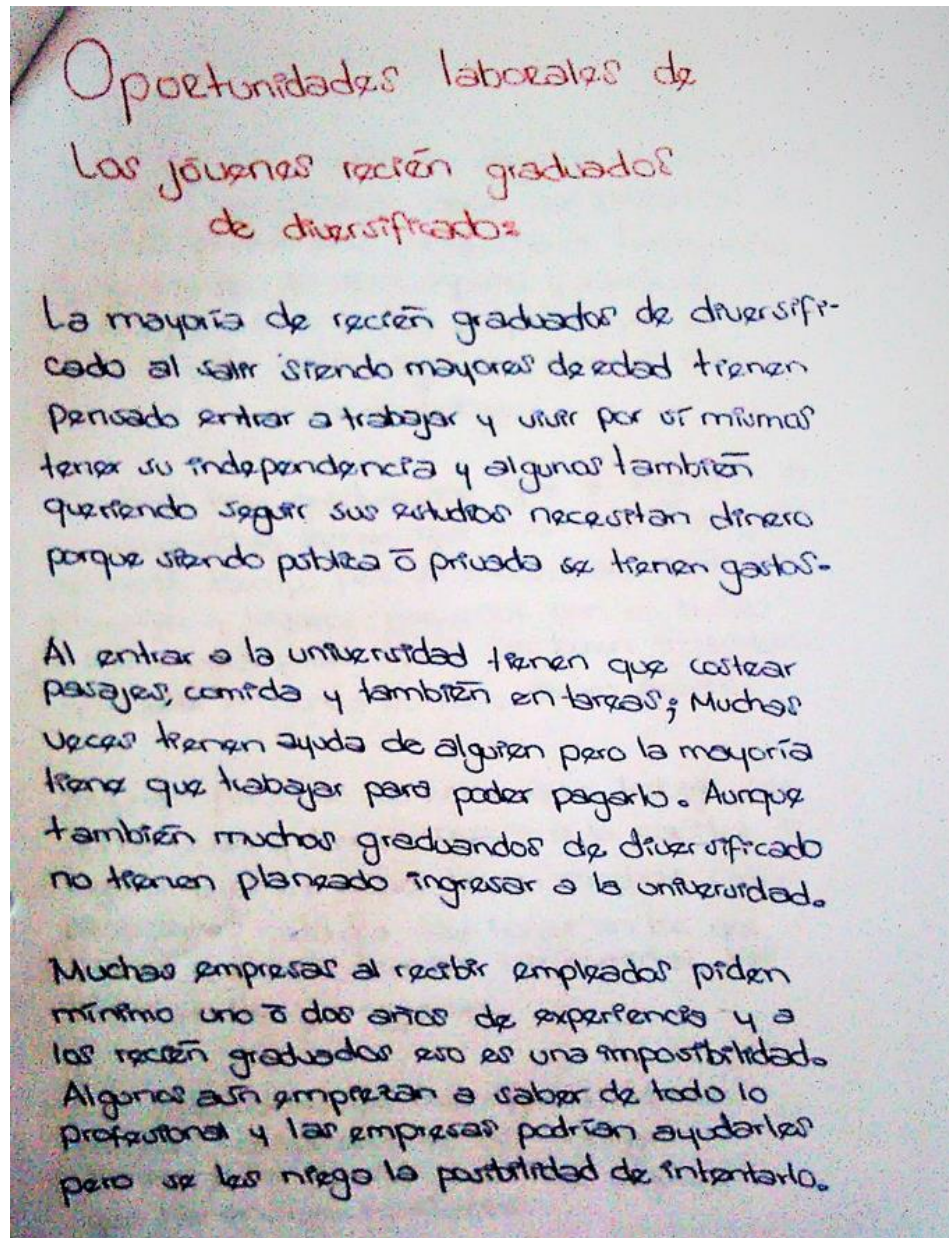 Oportunidades laborales de
los jóvenes recién graduados
de diversificado:
La mayoría de recién graduados de diversifi-
cado al salir siendo mayores de edad tienen
pensado entrar a trabajar y vivir por sí mismos
tener su independencia y algunos también
queriendo seguir sus estudios necesitan dinero
porque siendo pública ó privada se tienen gastos.
Al entrar a la universidad tienen que costear
pasajes, comida y también en tareas; Muchas
veces tienen ayuda de alguien pero la mayoría
tiene que trabajar para poder pagarlo. Aunque
también muchos graduandos de diversificado
no tienen planeado ingresar a la universidad.
Muchas empresas al recibir empleados piden
mínimo uno ó dos años de experiencia y a
los recién graduados eso es una imposibilidad.
Algunos aún empiezan a saber de todo lo
profesional y las empresas podrían ayudarles
pero se les niega la posibilidad de intentarlo.